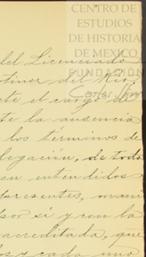 CENTRO DE
ESTUDIOS
DE HISTORIA
DE MEXICO
FUNDACIÓN
Carlos Slim
del Licenciado
tinez del Rio,
te el cargo de
te la ausencia
los términos de
legación, de todo
en entendidos
presentes, mani
por sí y con la
acreditada, que
y cada uno